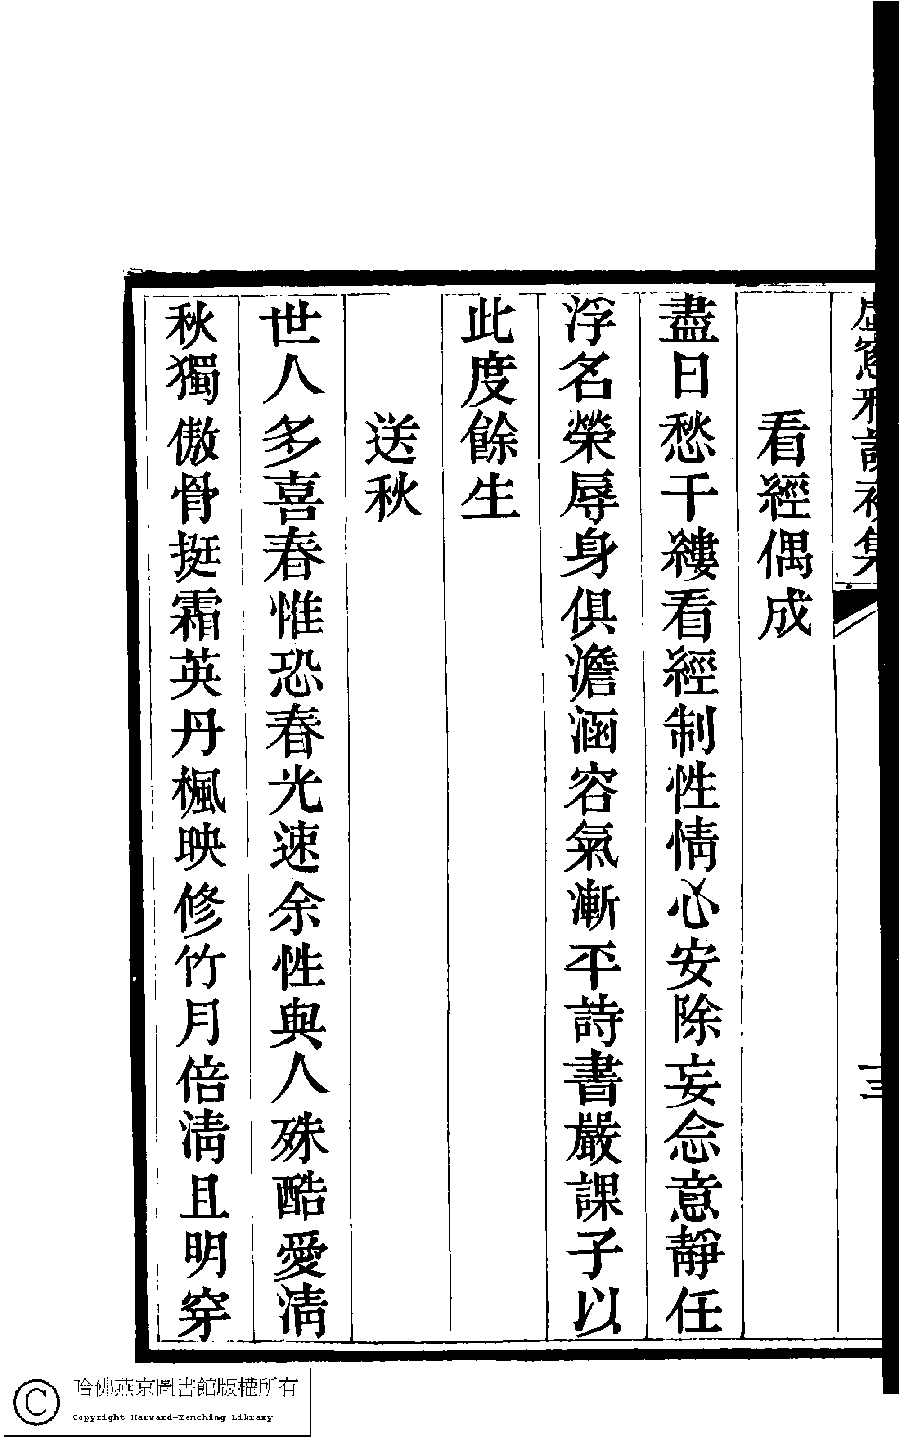 虛窻雅課初集
看經偶成
盡日愁千縷看經制性情心安除妄念意靜任
浮名榮辱身俱澹涵容氣漸平詩書嚴課子以
此度餘生
送秋
世人多喜春惟恐春光速余性與人殊酷愛淸
秋獨傲骨挺霜英丹楓映修竹月倍淸且明穿
哈佛燕京圖書館版權所有
Copyright Harvard-Yenching Library